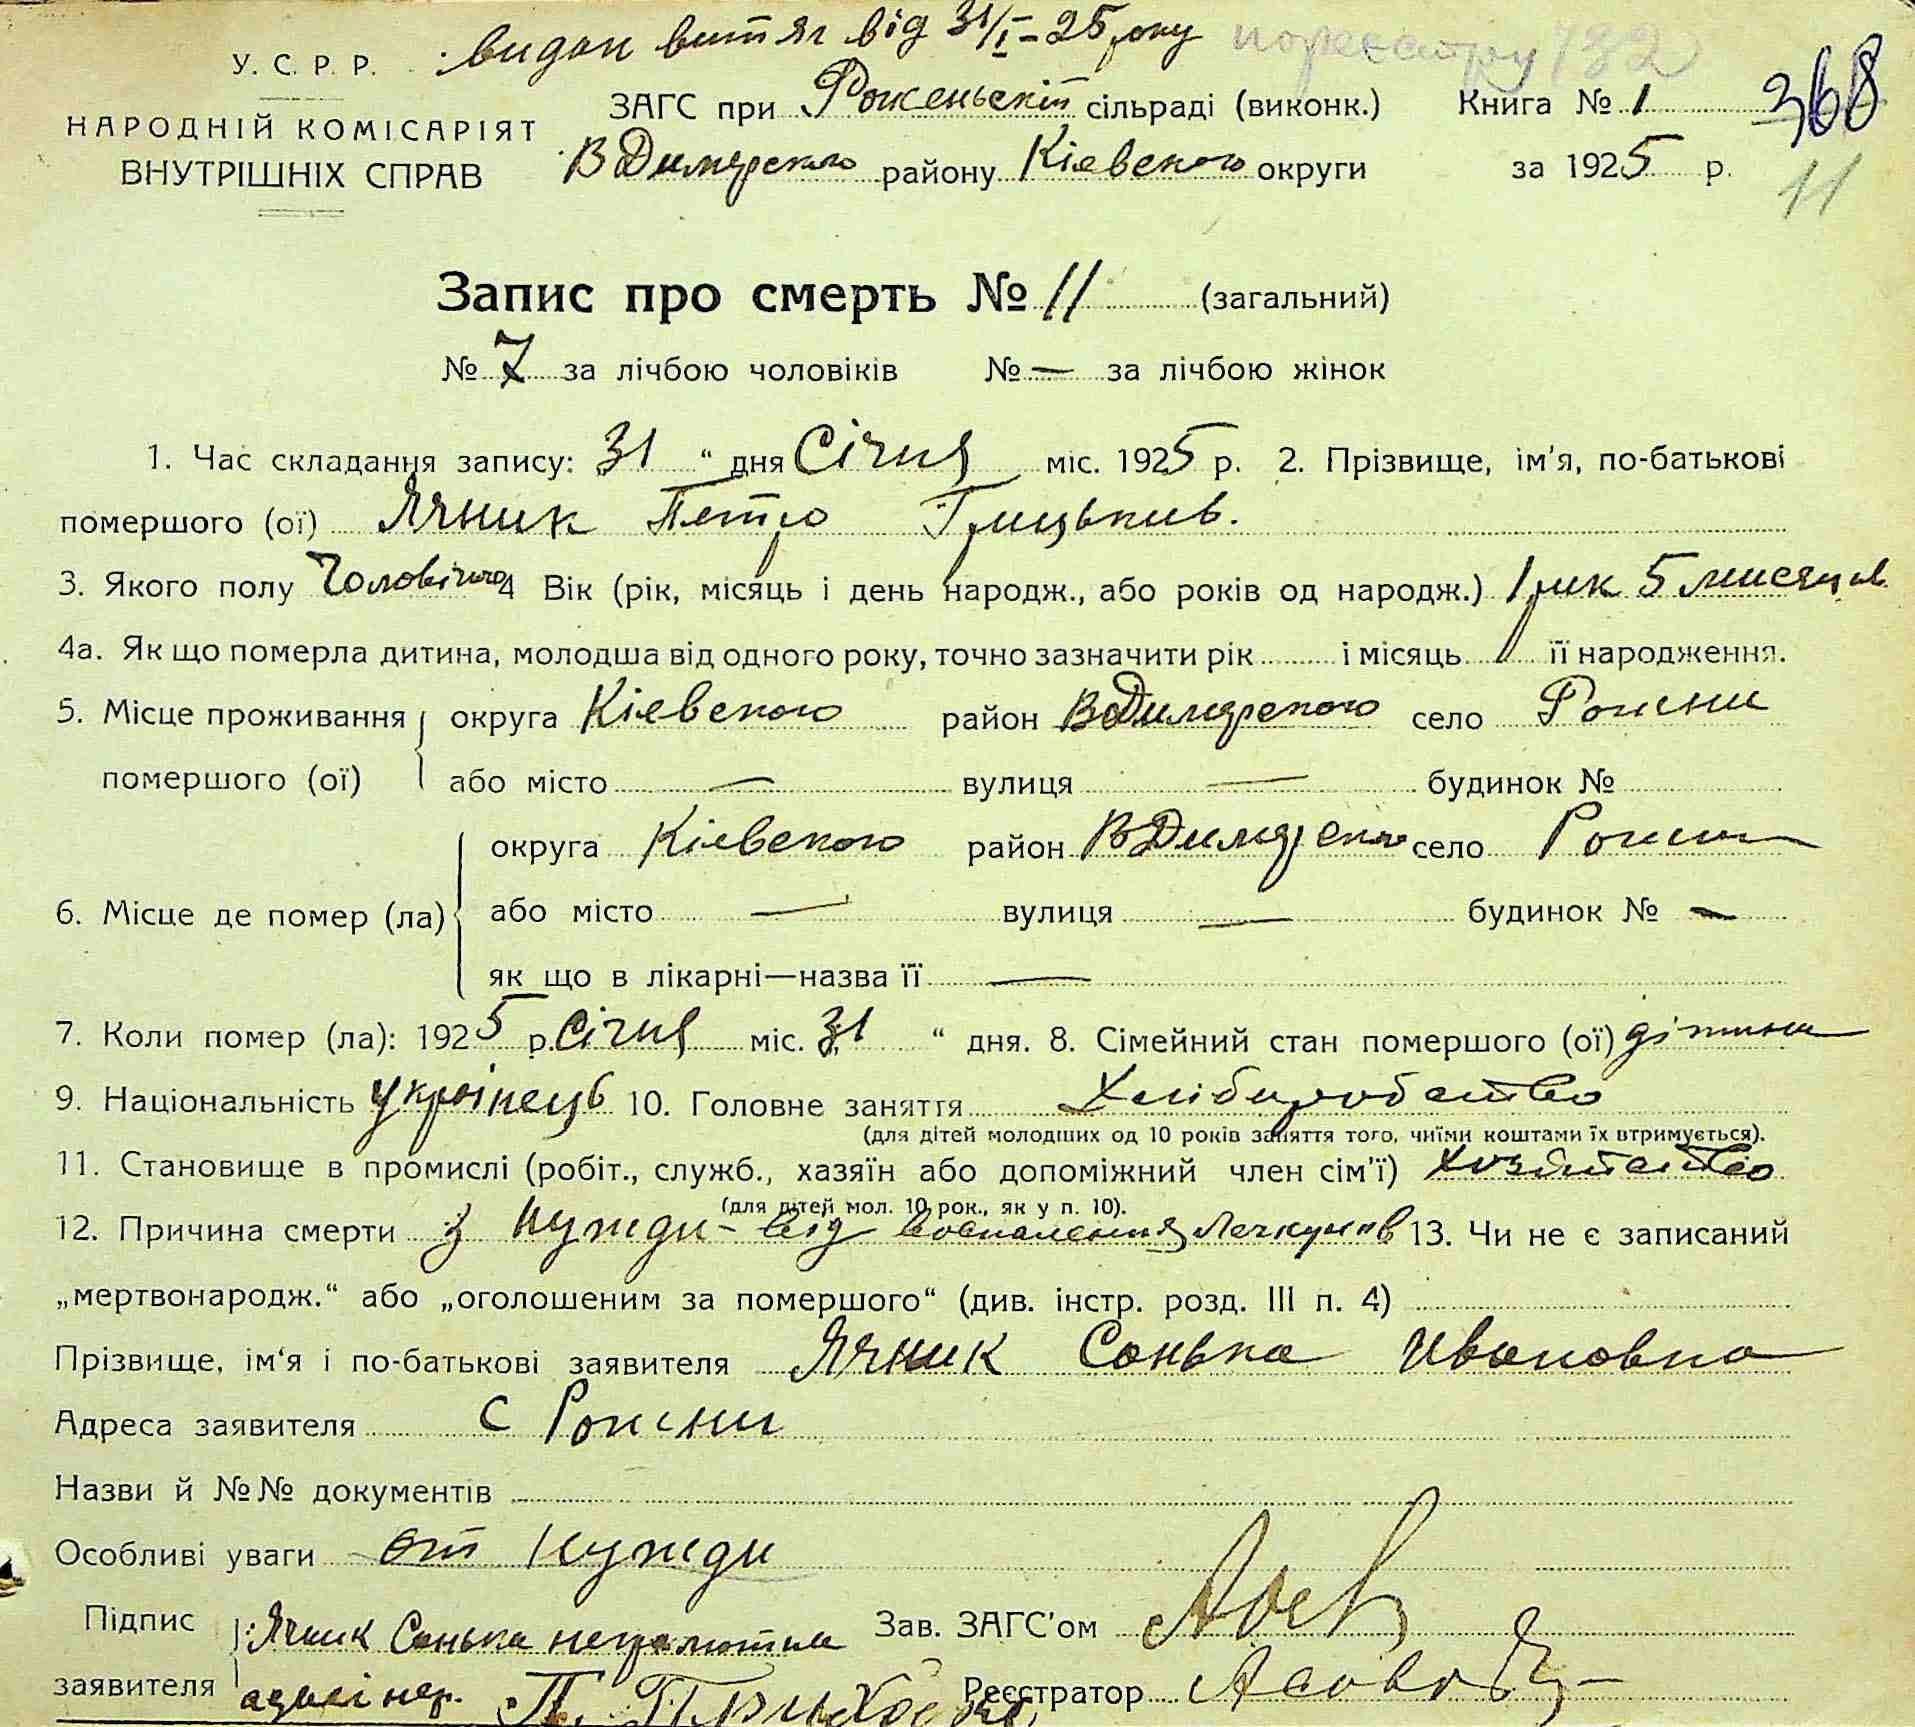 видан витяг від 31/I–25 року по реєстру 132
У. С. Р. Р.
НАРОДНІЙ КОМІСАРІЯТ
ВНУТРІШНІХ СПРАВ
ЗАГС при Роженьскій сільраді (виконк.) Книга № 1 368
В Димерского району Кіевского округи за 1925 р. 11
Запис про смерть № 11 (загальний)
№ 7 за лічбою чоловіків № — за лічбою жінок
1. Час складання запису: 31 “ дня Січня міс. 1925 р. 2. Прізвище, ім'я, по-батькові
помершого (ої) Ячник Петро Грицьків.
3. Якого полу Чоловічого 4 Вік (рік, місяць і день народж., або років од народж.) 1 рик 5 мисяців
4а. Як що померла дитина, молодша від одного року, точно зазначити рік і місяць її народження.
5. Місце проживання помершого (ої) округа Кіевского район В Димерского село Рожни
або місто — вулиця — будинок №
6. Місце де помер (ла) округа Кіевского район В Димерского село Рожни
або місто — вулиця — будинок № —
як що в лікарні—назва її —
7. Коли помер (ла): 1925 р. Січня міс. 31 “ дня. 8. Сімейний стан помершого (ої) дітина
9. Національність українець 10. Головне заняття Хліборобство
(для дітей молодших од 10 років заняття того, чиїми коштами їх втримується).
11. Становище в промислі (робіт., служб., хазяїн або допоміжний член сім'ї)
(для дітей мол. 10 рок., як у п. 10).
12. Причина смерти з нужди – від воспаления Лечкунів 13. Чи не є записаний
„мертвонародж.“ або „оголошеним за помершого“ (див. інстр. розд. III п. 4)
Прізвище, ім'я і по-батькові заявителя Ячник Сонька Ивановна
Адреса заявителя С Рожни
Назви й №№ документів
Особливі уваги от нужди
Підпис заявителя Ячник Сонька неграмотна
Зав. ЗАГС'ом
П. Приходько
Реєстратор